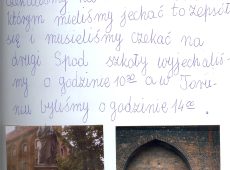 którym mieliśmy jechać to zepsół
się i musieliśmy czekać na
drógi Spod szkoły wyjechaliś-
my o godzinie 10³⁰ a w Toru-
niu byliśmy o godzinie 14⁰⁰.